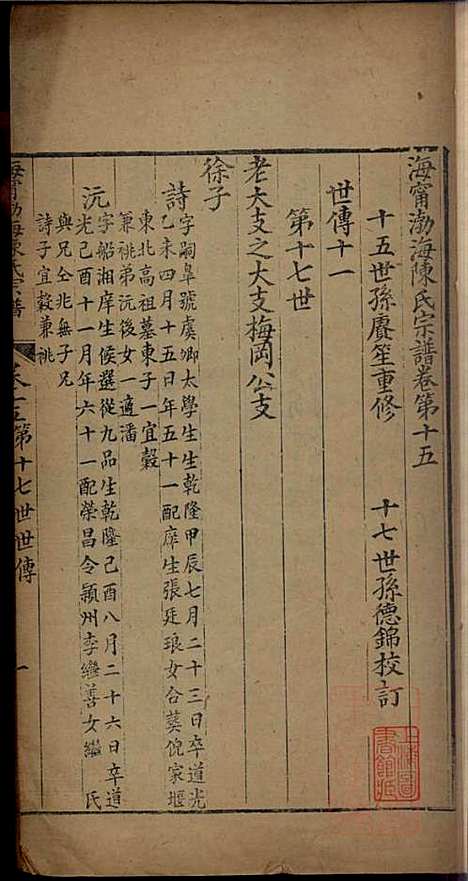 海甯渤海陳氏宗譜卷第十五
十五世孫賡笙重修
十七世孫德錦校訂
世傳十一
第十七世
老大支之大支梅岡公支
徐子
詩字嗣皐號虞卿太學生生乾隆甲辰七月二十三日卒道光
乙未四月十五日年五十一配庠生張廷琅女合葬倪家堰
東北高祖墓東子一宜穀
兼祧弟沅後女一適潘
沅字船湘庠生候選從九品生乾隆己酉八月二十六日卒道
光己酉十一月年六十一配榮昌令潁州李繼善女繼 氏
與兄仝兆無子兄
詩子宜穀兼祧
海甯渤海陳氏宗譜 卷十五第十七世世傳 一
上海圖書館藏